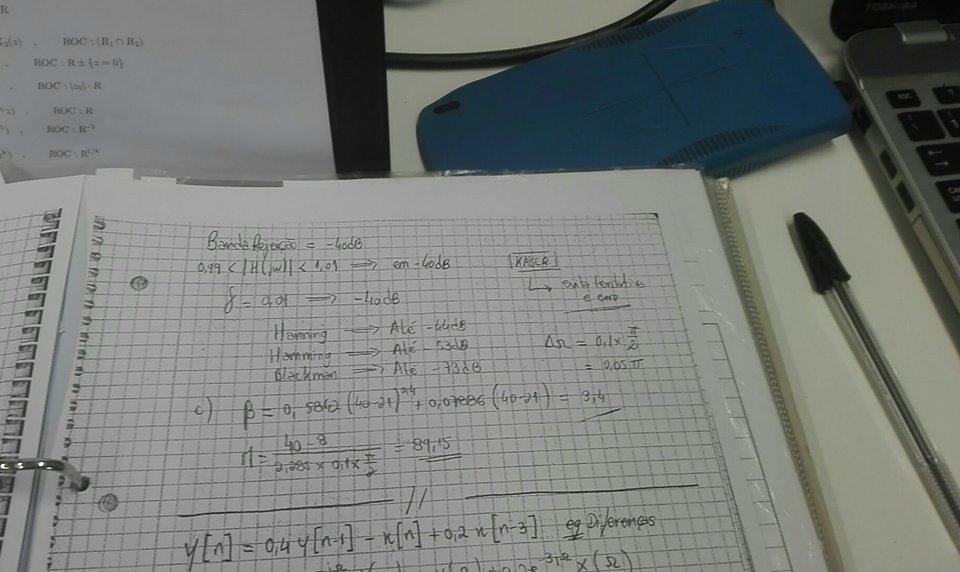 R
ROC : (R₁ ∩ R₂)
ROC : R ± {z = 0}
ROC : |z₀| · R
ROC : R
ROC : R⁻¹
ROC : R^{1/k}
TOSHIBA
ESC
Banda Rejeição = -40dB
0,99 < |H(jω)| < 1,01 ⟹ em -40dB
KAISER
↳ evita tentativa
e erro
δ = 0,01 ⟹ -40dB
Hanning ⟹ Até -44dB
Hamming ⟹ Até -53dB
Blackman ⟹ Até -73dB
ΔΩ = 0,1 × π/2
= 0,05π
c) β = 0,5842 (40-21)^{0,4} + 0,07886 (40-21) = 3,4
M = (40-8)/(2,285 × 0,1 × π/2) = 89,15
//
y[n] = 0,4 y[n-1] - x[n] + 0,2 x[n-3] eq Diferenças
X(Ω)